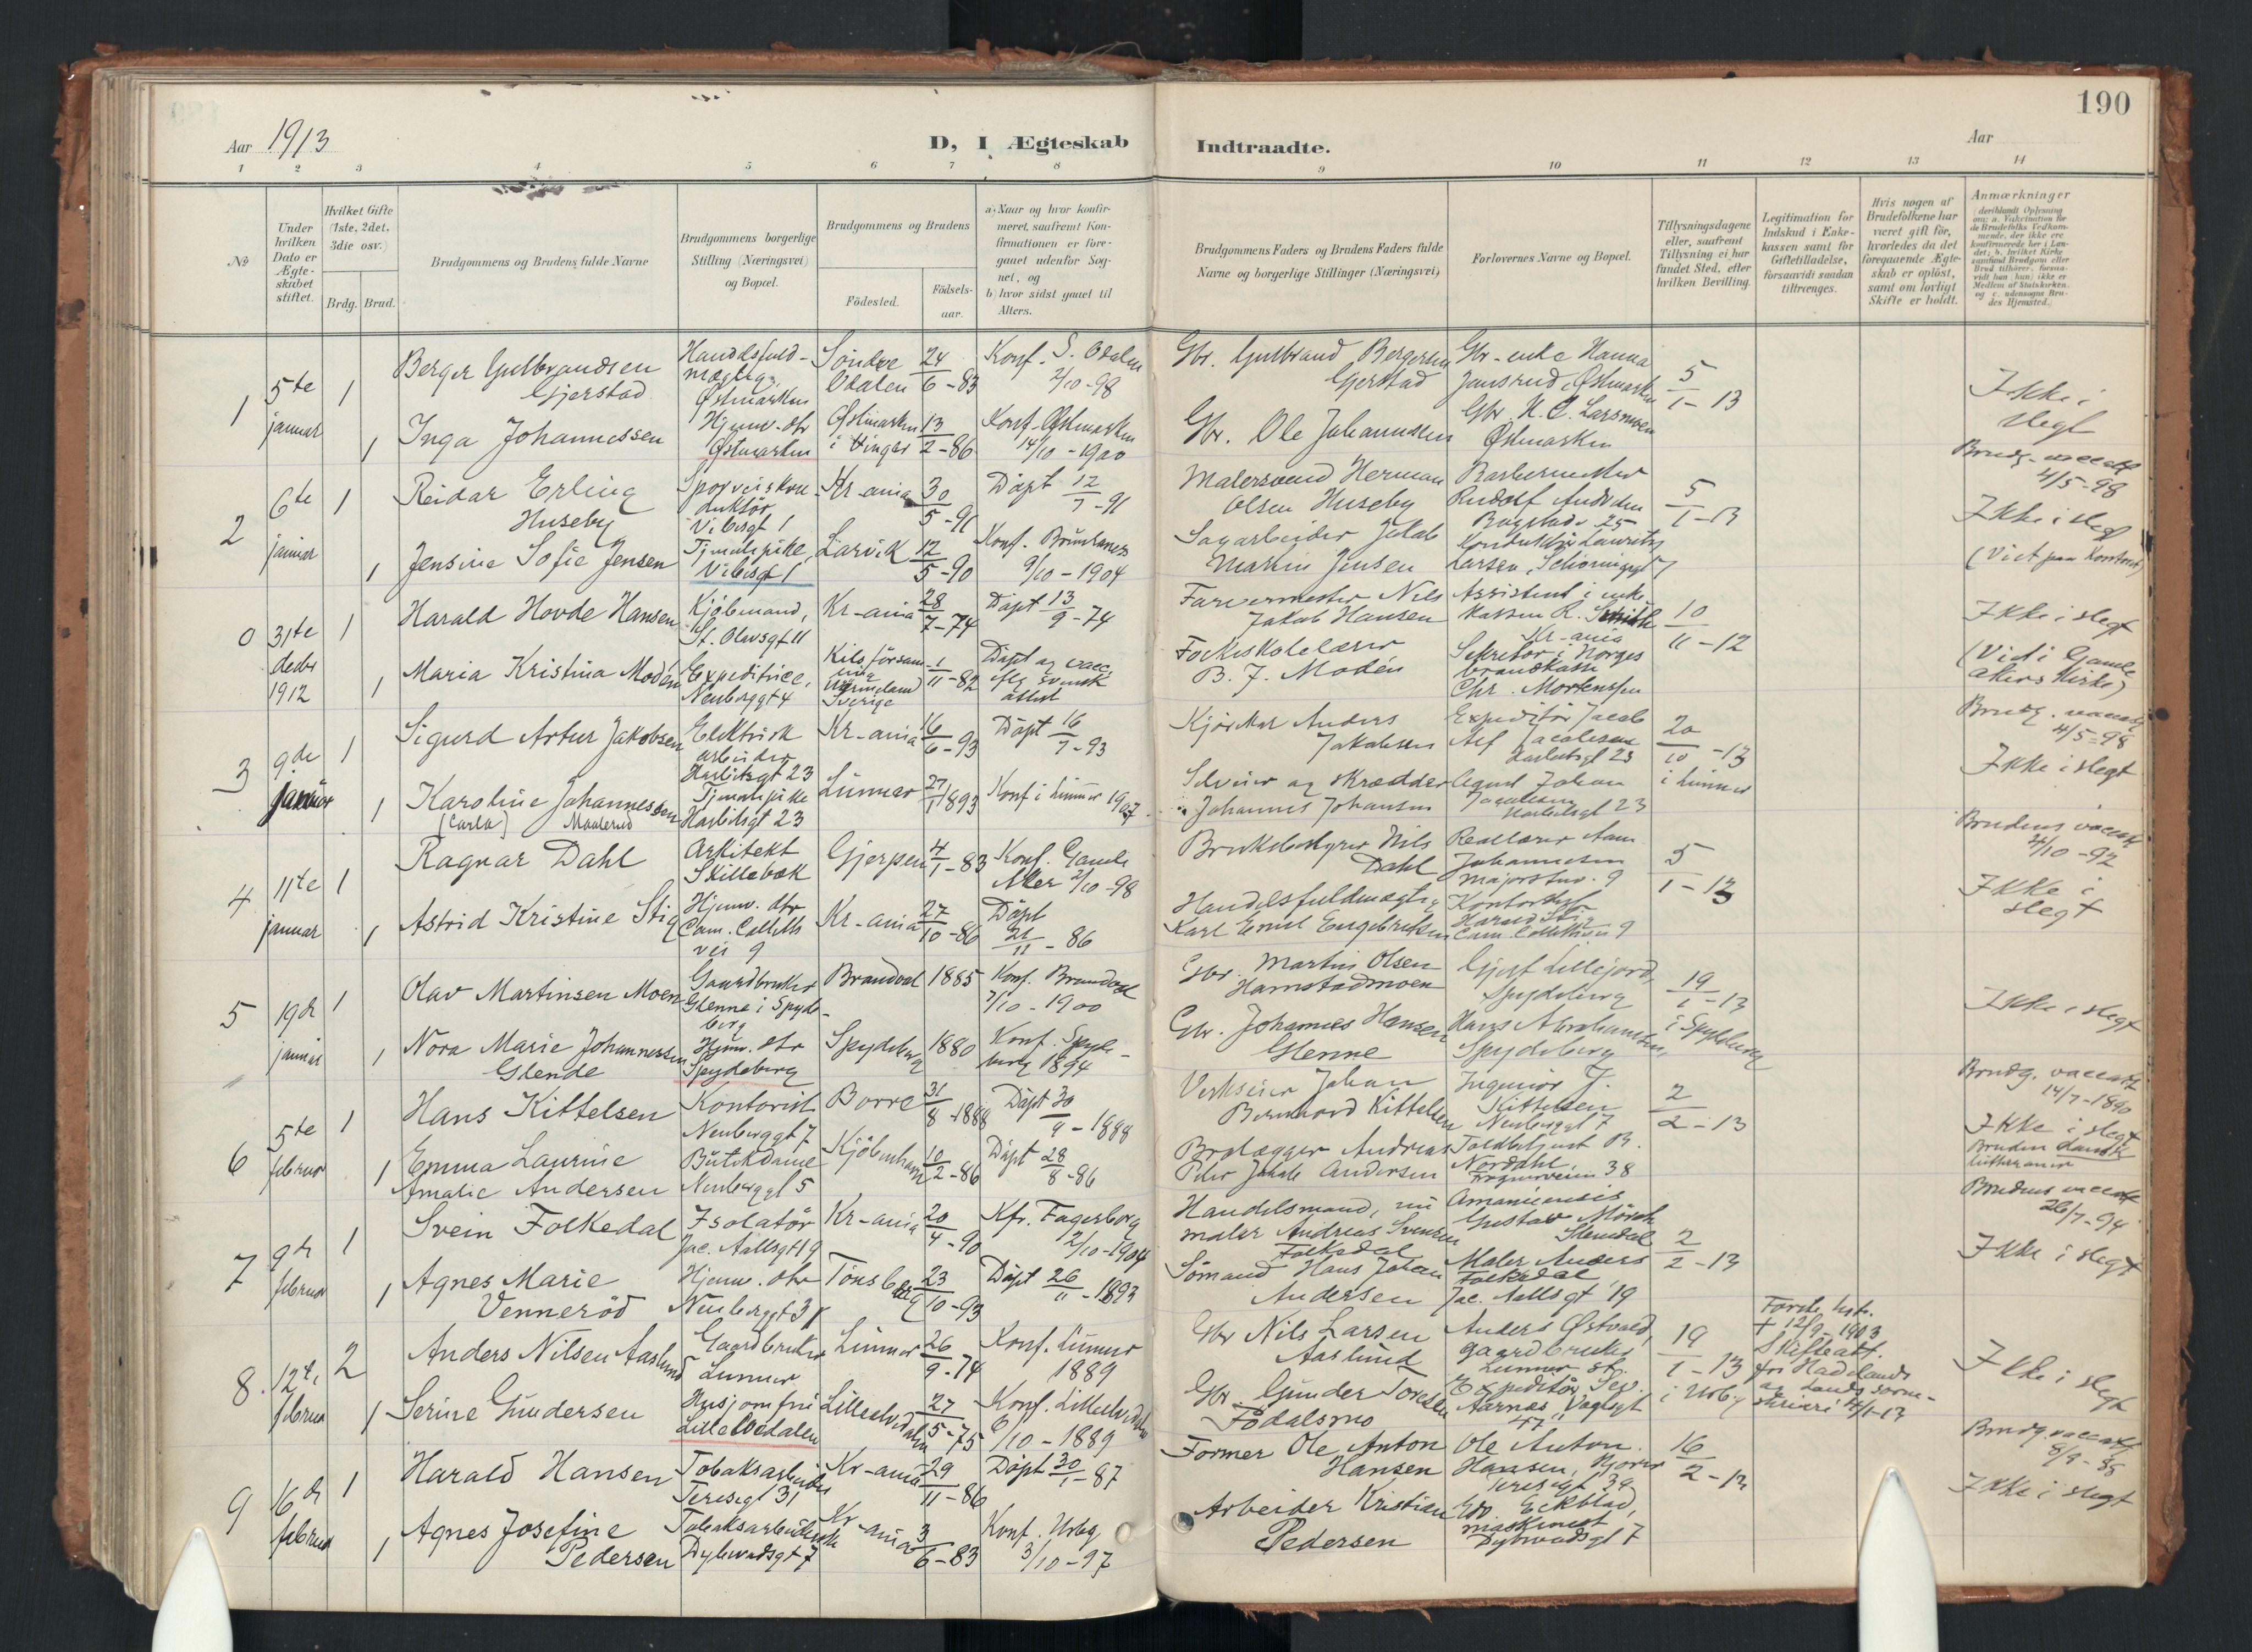 190
Aar 1913
D, I Ægteskab
Indtraadte.
Aar
1 2 3 4 5 6 7 8 9 10 11 12 13 14
№
Under hvilken Dato er Ægteskabet stiftet.
Hvilket Gifte (1ste, 2det, 3die osv.)
Brdg. Brud.
Brudgommens og Brudens fulde Navne
Brudgommens borgerlige Stilling (Næringsvei) og Bopæl.
Brudgommens og Brudens
Födested.
Födsels-aar.
a) Naar og hvor konfir-
meret, saafremt Kon-
firmationen er fore-
gaaet udenfor Sog-
net, og
b) hvor sidst gaaet til
Alters.
Brudgommens Faders og Brudens Faders fulde
Navne og borgerlige Stillinger (Næringsvei)
Forlovernes Navne og Bopæl.
Tillysningsdagene
eller, saafremt
Tillysning ei har
fundet Sted, efter
hvilken Bevilling.
Legitimation for
Indskud i Enke-
kassen samt for
Giftetilladelse,
forsaavidt saadan
tiltrænges.
Hvis nogen af
Brudefolkene har
været gift før,
hvorledes da det
foregaaende Ægte-
skab er opløst,
samt om lovligt
Skifte er holdt.
Anmærkninger
1
5te januar
1
Berger Gulbrandsen
Gjerstad
Handelsfuld-
mægtig,
Østmarken
Søndre
Odalen
24/6-83
Konf. S. Odalen
2/10-98
Gbr. Gulbrand Bergersen
Gjerstad
Gbr-enke Hanna
Jansrud, Østmarken
5/1-13
Ikke i
slegt
1
Inga Johannessen
Hjemv. dtr
Østmarken
Østmarken
i Vinger
13/2-86
Konf. Østmarken
14/10-1900
Gbr. Ole Johannessen
Gbr. K. C. Larsmoen
Østmarken
2
6te januar
1
Reidar Erling
Huseby
Sporveiskon-
duktør,
Vibesgt 1
Kr-ania
30/5-91
Døpt 12/7-91
Malersvend Herman
Olsen Huseby
Barbermester
Rudolf
Bogstadv 25
5/1-13
Brudg. vaccat
4/5-98
Ikke i slegt
(Viet paa Kontoret)
1
Jensine Sofie Jensen
Tjenestepike,
Vibesgt 1
Larvik
12/5-90
Konf. Brunlanes
9/10-1904
Sagarbeider Jakob
Martin Jensen
Konduktør Lauritz
Larsen, Schøningsgt 7
0
31te decbr 1912
1
Harald Hovde Hansen
Kjøbmand,
St. Olavsgt 11
Kr-ania
28/7-74
Døpt 13/9-74
Farvermester Nils
Jakob Hansen
Assistent i enke-
kassen R.
Kr-ania
10/11-12
Ikke i slegt
(Vid i Gamle
Akers Kirke)
1
Maria Kristina Modén
Expeditrice,
Neuberggt 4
Kils försam-
ling
Värmeland
Sverige
1/11-82
Døpt og vacc
iflg svensk
attest
Folkeskolelærer
B. J. Modén
Sekretær i Norges
brandkasse
Chr. Mortensen
3
9de januar
1
Sigurd Artur Jakobsen
Elektrisk
arbeider
Harbitzgt 23
Kr-ania
16/6-93
Døpt 16/7-93
Anders
Jakobsen
Expeditør Jacob
Alf Jacobsen
Harbitzgt 23
20/10-13
i Lunner
Brudg. vaccat
4/5-98
Ikke i slegt
1
Karoline Johannessen
(Carla) Maalerud
Tjenestepike
Harbitzgt 23
Lunner
27/1 1893
Konf i Lunner 1907
Selveier og skrædder
Johannes Johansen
Johan
Jacobsen
Harbitzgt 23
4
11te januar
1
Ragnar Dahl
Arkitekt
Skillebæk
Gjerpen
4/1-83
Konf. Gamle
Aker 2/10-98
Bruksbestyrer Nils
Dahl
Reallærer
Johannesen
Majorstuv. 9
5/1-13
Brudens vaccat
4/10-92
Ikke i
slegt
1
Astrid Kristine Stig
Hjemv. dtr
Cam. Colletts
vei 9
Kr-ania
27/10-86
Døpt
21/11-86
Handelsfuldmægtig
Karl Emil Engebretsen
Kontorchef
Harald Stig
Cam. Collettsvei 9
5
19de januar
1
Olav Martinsen Moen
Gaardbruker
Glenne i Spyde-
berg
Brandval
1885
Konf. Brandval
7/10-1900
Gbr. Martin Olsen
Hamstadmoen
Gjert Lillejord,
Spydeberg
19/1-13
i Spydeberg
Ikke i slegt
1
Nora Marie Johannessen
Glende
Hjemv. dtr
Spydeberg
Spydeberg
1880
Konf. Spyde-
berg 1894
Gbr. Johannes Hansen
Glenne
Hans Abrahamsen,
Spydeberg
6
5te februar
1
Hans Kittelsen
Kontorist
Neuberggt 7
Borre
31/8-1888
Døpt 30/9-1888
Verkseier Johan
Bernhard Kittelsen
Ingeniør J.
Kittelsen
Neuberggt 7
2/2-13
Brudg. vaccat
14/7-1890
Ikke i slegt
Bruden dansk
luthersaner
1
Emma Laurine
Amalie Andersen
Butikdame
Neuberggt 5
Kjøbenhavn
10/2-86
Døpt 28/8-86
Brolægger Andreas
Peter Jakob Andersen
Toldbetjent B.
Nordahl,
Frognerveien 38
7
9de februar
1
Svein Folkedal
Isolatør
Jac. Aallsgt 19
Kr-ania
20/4-90
Kfr. Fagerborg
2/10-1904
Handelsmand, nu
maler Andreas Svensen
Folkedal
Amanuensis
Gustav Mørch
2/2-13
Brudens vaccat
26/7-94
Ikke i slegt
1
Agnes Marie
Vennerød
Hjemv. dtr
Neuberggt 3
Tønsberg
23/10-93
Døpt 26/11-1893
Sømand Hans Johan
Andersen
Maler Anders
Folkedal
Jac. Aallsgt 19
8.
12te februar
2
Anders Nilsen Aaslund
Gaardbruker
Lunner
Lunner
26/9-74
Konf. Lunner
1889
Gbr Nils Larsen
Aaslund
Anders Østvold,
gaardbruker
Lunner st.
19/1-13
i Urby
Første hstr.
† 12/9-1903
Skifteatt.
fra Hadelands
og Lands soren-
skriveri 4/1-13
Ikke i slegt
1
Serine Gundersen
Husjomfru
Lilleelvedalen
Lilleelvedalen
27/5-75
Konf. Lilleelvedalen
6/10-1889
Gbr. Gunder
Fådalsmo
Expeditør
Aarnæs, Vogtsgt
47
9
16de februar
1
Harald Hansen
Tobaksarbeider
Teresegt 31
Kr-ania
29/11-86
Døpt 30/1-87
Former Ole Anton
Hansen
Ole Anton
Hansen,
Teresegt 39
16/2-13
Brudg. vaccat
8/9-88
Ikke i slegt
1
Agnes Josefine
Pedersen
Tobaksarbeiderske
Dybwadsgt 7
Kr-ania
3/6-83
Konf. Urbg
3/10-97
Arbeider Kristian
Pedersen
Edv. Eckblad,
maskinist
Dybwadsgt 7